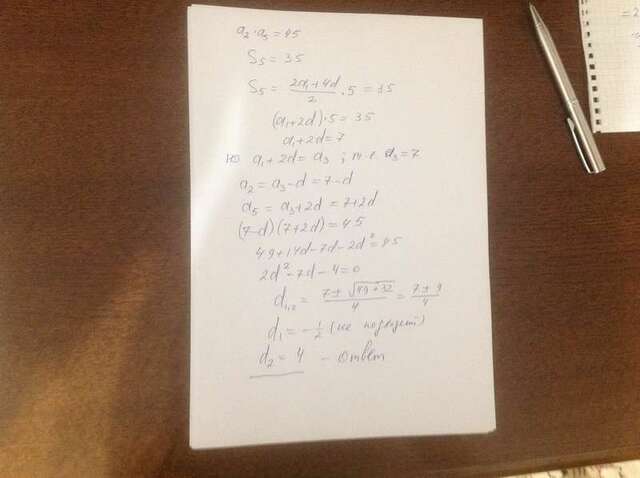 a₂·a₅ = 45
S₅ = 35
S₅ = (2a₁+4d)/2 · 5 = 35
(a₁+2d)·5 = 35
a₁+2d = 7
a₁+2d = a₃ ; т.е. a₃ = 7
a₂ = a₃-d = 7-d
a₅ = a₃+2d = 7+2d
(7-d)(7+2d) = 45
49+14d-7d-2d² = 45
2d²-7d-4=0
d₁,₂ = (7±√(49+32))/4 = (7±9)/4
d₁ = -1/2 (не подходит)
d₂ = 4 - ответ